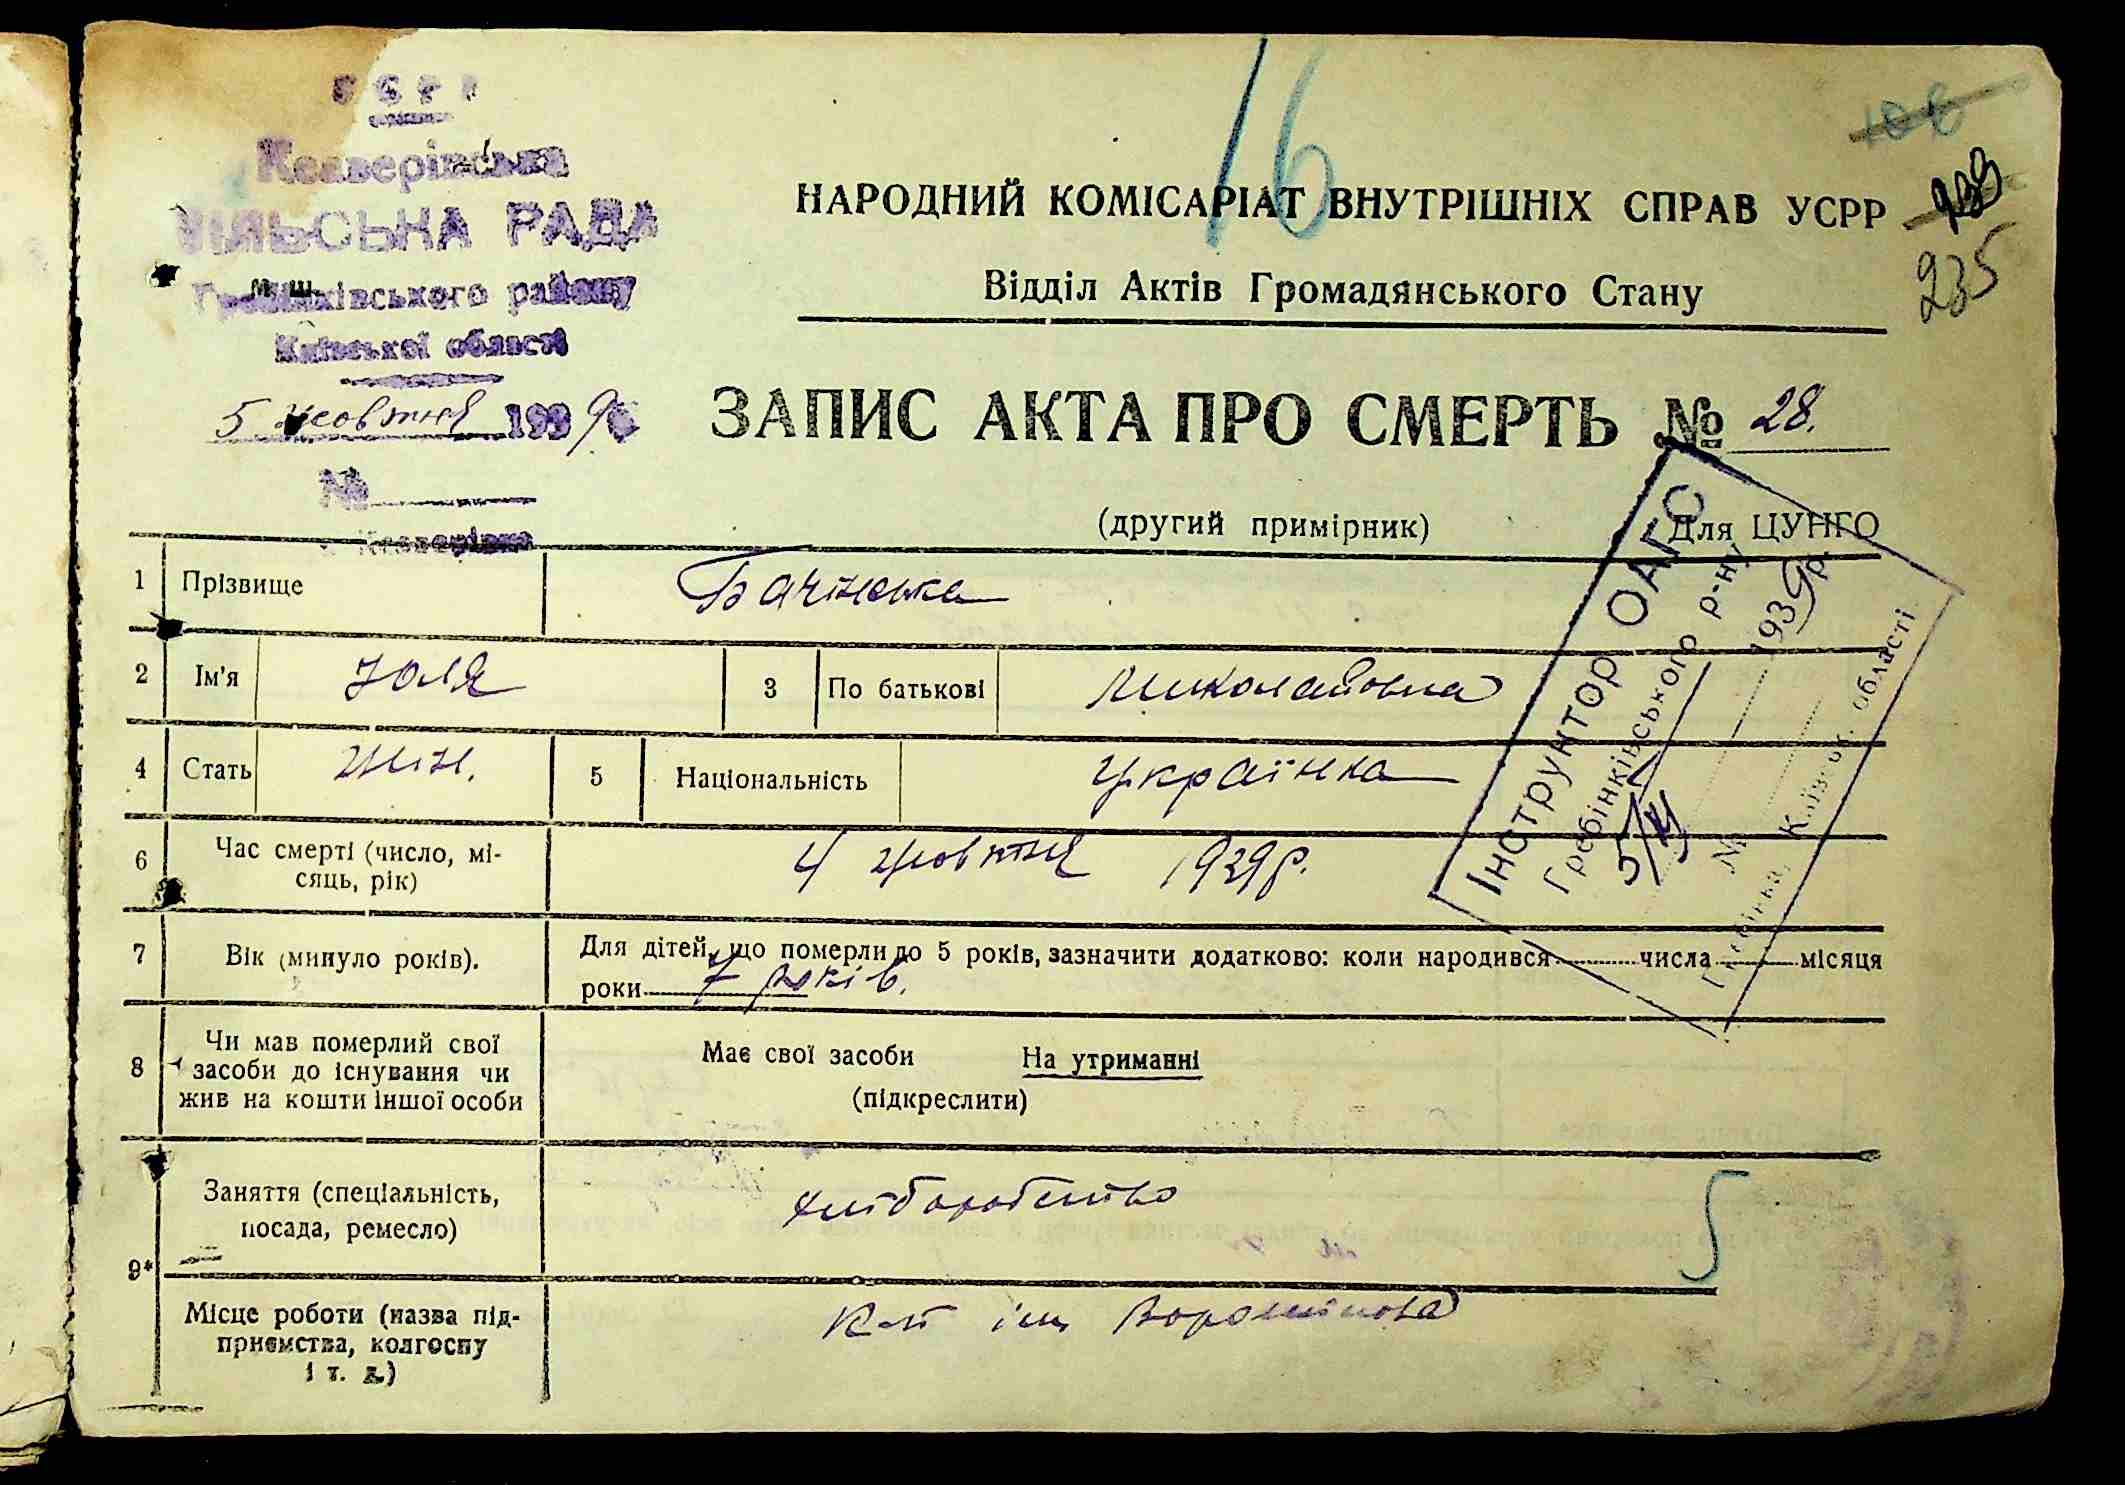 УСРР
Ксаверівська
СІЛЬСЬКА РАДА
Гребінківського району
Київської області
5 жовтня 1939
№
16
235
НАРОДНИЙ КОМІСАРІАТ ВНУТРІШНІХ СПРАВ УСРР
Відділ Актів Громадянського Стану
ЗАПИС АКТА ПРО СМЕРТЬ № 28.
(другий примірник) Для ЦУНГО
Інструктор ОАГС
Гребінківського р-ну
5/X 1939 р.
№
Київськ. області
1 Прізвище Бачінська
2 Ім'я Юля 3 По батькові Миколаївна
4 Стать жін. 5 Національність українка
6 Час смерті (число, мі-
сяць, рік) 4 жовтня 1939 р.
7 Вік (минуло років). Для дітей, що померли до 5 років, зазначити додатково: коли народився числа місяця
роки 7 років.
8 Чи мав померлий свої
засоби до існування чи
жив на кошти іншої особи
Має свої засоби На утриманні
(підкреслити)
9* Заняття (спеціальність,
посада, ремесло) хліборобство
Місце роботи (назва під-
приємства, колгоспу
і т. д.) К-п ім Ворошилова
5